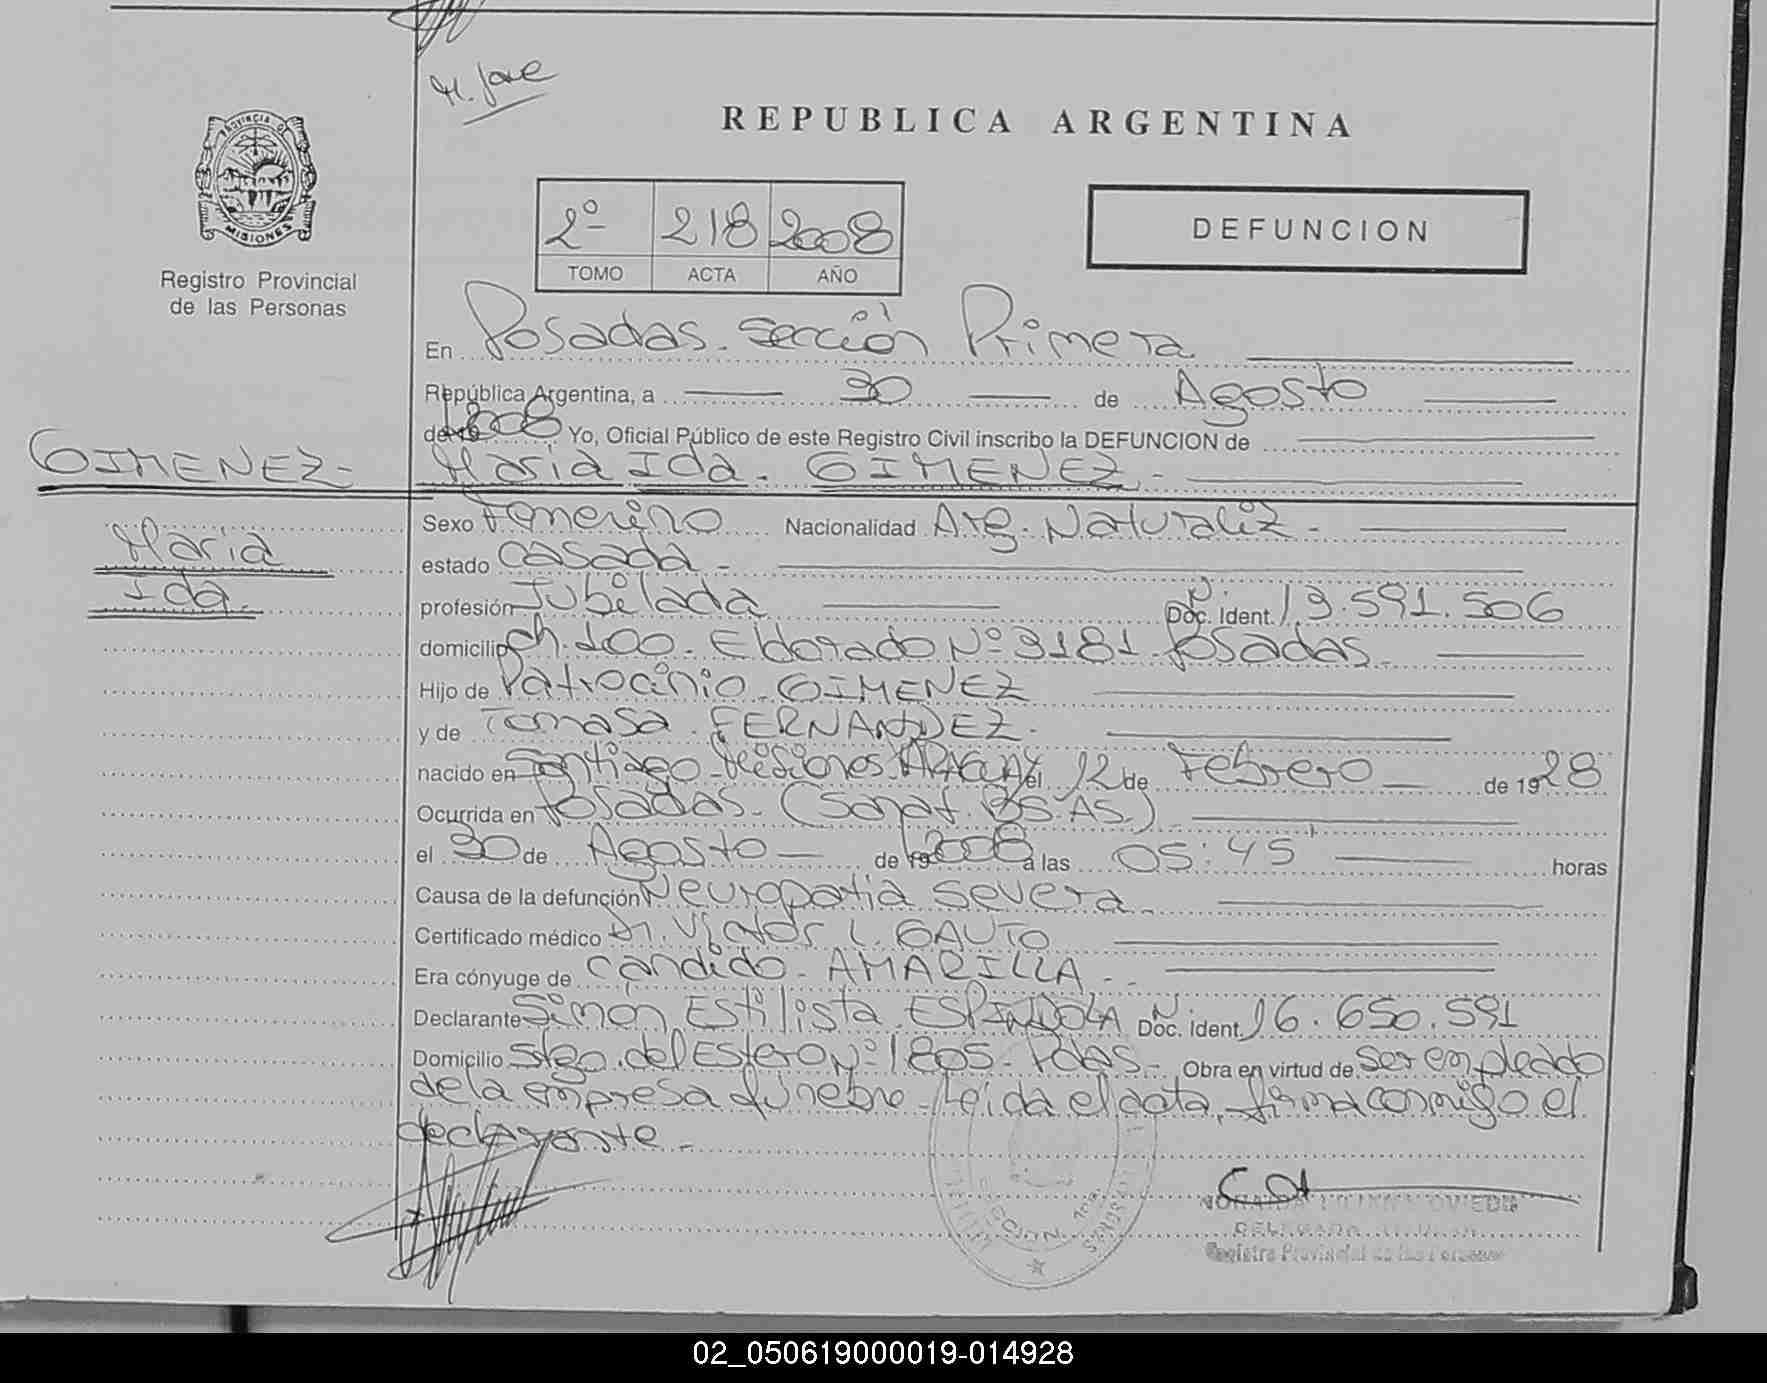 M. Jove
REPUBLICA ARGENTINA
PROVINCIA DE
MISIONES
Registro Provincial
de las Personas
2º 218 2008
TOMO ACTA AÑO
DEFUNCION
En Posadas. Sección Primera
República Argentina, a 30 de Agosto
de 2008 Yo, Oficial Público de este Registro Civil inscribo la DEFUNCION de
GIMENEZ- Maria Ida. GIMENEZ.-
Maria
Ida.
Sexo Femenino Nacionalidad Arg. Naturaliz-
estado Casada-
profesión Jubilada Doc. Ident. 13.591.506
domicilio Ch. 100. Eldorado Nº 3181. Posadas.
Hijo de Patrocinio GIMENEZ
y de Tomasa FERNANDEZ.
nacido en Santiago Misiones el 12 de Febrero de 1928
Ocurrida en Posadas- (Sanat. BS. AS.)
el 30 de Agosto de 2008 a las 05:45 horas
Causa de la defunción Neuropatia severa.
Certificado médico Dr. Victor L. GAUTO
Era cónyuge de Candido- AMARILLA.-
Declarante Simón Estilista ESPINDOLA Doc. Ident. 16.650.591
Domicilio Stgo. del Estero Nº 1805- Pdas.- Obra en virtud de ser empleado
de la empresa fúnebre- Leida el acta, firma conmigo el
declarante-
SECCION 1era
OVIEDO
Registro Provincial de las Personas
02_050619000019-014928